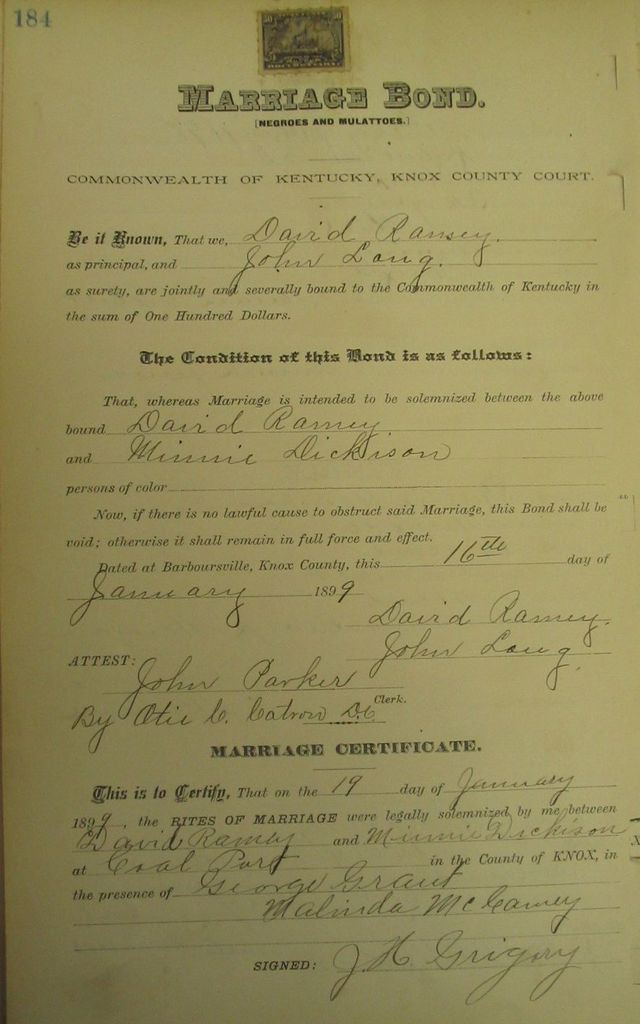 184
MARRIAGE BOND.
[NEGROES AND MULATTOES.]
COMMONWEALTH OF KENTUCKY, KNOX COUNTY COURT.
Be it Known, That we, David Ramsey.
as principal, and John Long.
as surety, are jointly and severally bound to the Commonwealth of Kentucky in
the sum of One Hundred Dollars.
The Condition of this Bond is as follows:
That, whereas Marriage is intended to be solemnized between the above
bound David Ramey
and Minnie Dickison
persons of color
Now, if there is no lawful cause to obstruct said Marriage, this Bond shall be
void; otherwise it shall remain in full force and effect.
Dated at Barboursville, Knox County, this 16th day of
January 1899
David Ramey.
John Long.
ATTEST:
John Parker
Clerk.
By Otie C. Catron D.C
MARRIAGE CERTIFICATE.
This is to Certify, That on the 19 day of January
1899, the RITES OF MARRIAGE were legally solemnized by me between
David Ramey and Minnie Dickison
at Coal Port in the County of KNOX, in
the presence of George Grant
Malinda McCamey
SIGNED: J. H. Grigory